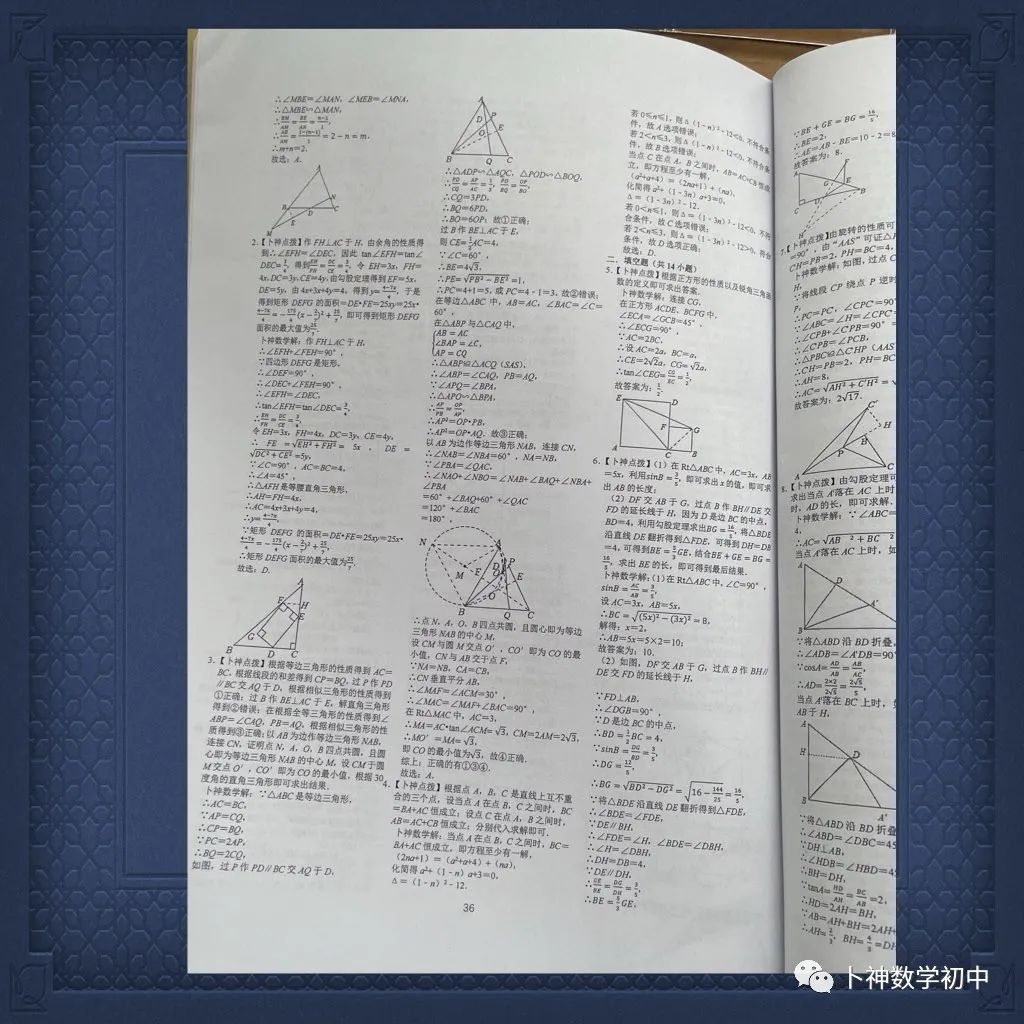 ∴∠MBE=∠MAN,∠MEB=∠MNA,
∴△MBE∽△MAN,
∴m+n=2.
故选:A.
2.【卜神点拨】作FH⊥AC于H,由余角的性质得
到∠EFH=∠DEC,因此tan∠EFH=tan∠
4x,DC=3y,CE=4y,由勾股定理得到EF=5x,
DE=5y,由4x+3x+4y=4,得到y=(4-7x)/4,于是
得到矩形DEFG的面积=DE•FE=25xy=25x•
面积的最大值为25/7.
卜神数学解:作FH⊥AC于H,
∴∠EFH+∠FEH=90°,
∵四边形DEFG是矩形,
∴∠DEF=90°,
∴∠DEC+∠FEH=90°,
∴∠EFH=∠DEC,
∴tan∠EFH=tan∠DEC=3/4,
∴EH/FH=DC/CE=3/4,
令EH=3x,FH=4x,DC=3y,CE=4y,
∴FE=√(EH²+FH²)=5x,DE=
√(DC²+CE²)=5y,
∵∠C=90°,AC=BC=4,
∴∠A=45°,
∴△AFH是等腰直角三角形,
∴AH=FH=4x,
∴AC=4x+3x+4y=4,
∴y=(4-7x)/4,
∵矩形DEFG的面积=DE•FE=25xy=25x•
(4-7x)/4=-175/4(x-2/7)²+25/7,
∴矩形DEFG面积的最大值为25/7,
故选:D.
3.【卜神点拨】根据等边三角形的性质得到AC=
BC,根据线段的和差得到CP=BQ,过P作PD
∥BC交AQ于D,根据相似三角形的性质得到
①正确;过B作BE⊥AC于E,解直角三角形
得到②错误;在根据全等三角形的性质得到∠
ABP=∠CAQ,PB=AQ,根据相似三角形的性
质得到③正确;以AB为边作等边三角形NAB,
连接CN,证明点N,A,O,B四点共圆,且圆
心即为等边三角形NAB的中心M,设CM于圆
M交点O′,CO′即为CO的最小值,根据30
度角的直角三角形即可求出结果.
卜神数学解:∵△ABC是等边三角形,
∴AC=BC,
∵AP=CQ,
∴CP=BQ,
∵PC=2AP,
∴BQ=2CQ,
如图,过P作PD∥BC交AQ于D,
∴△ADP∽△AQC,△POD∽△BOQ,
∴PD/CQ=AP/AC=1/3,PD/BQ=OP/BO,
∴CQ=3PD,
∴BQ=6PD,
∴BO=6OP;故①正确;
过B作BE⊥AC于E,
则CE=1/2AC=4,
∵∠C=60°,
∴BE=4√3,
∴PE=√(PB²-BE²)=1,
∴PC=4+1=5,或PC=4-1=3,故②错误;
在等边△ABC中,AB=AC,∠BAC=∠C=
60°,
在△ABP与△CAQ中,
AB=AC
∠BAP=∠C,
AP=CQ
∴△ABP≌△ACQ(SAS),
∴∠ABP=∠CAQ,PB=AQ,
∵∠APQ=∠BPA,
∴△APO∽△BPA,
∴AP/PB=OP/AP,
∴AP²=OP•PB,
∴AP²=OP•AQ.故③正确;
以AB为边作等边三角形NAB,连接CN,
∴∠NAB=∠NBA=60°,NA=NB,
∵∠PBA=∠QAC,
∴∠NAO+∠NBO=∠NAB+∠BAQ+∠NBA+
∠PBA
=60°+∠BAQ+60°+∠QAC
=120°+∠BAC
=180°,
∴点N,A,O,B四点共圆,且圆心即为等边
三角形NAB的中心M,
设CM与圆M交点O′,CO′即为CO的最
小值,CN与AB交于点F,
∵NA=NB,CA=CB,
∴CN垂直平分AB,
∴∠MAF=∠ACM=30°,
∴∠MAC=∠MAF+∠BAC=90°,
在Rt△MAC中,AC=3,
∴MA=AC•tan∠ACM=√3,CM=2AM=2√3,
∴MO′=MA=√3,
即CO的最小值为√3,故④正确.
综上:正确的有①③④.
故选:A.
4.【卜神点拨】根据点A,B,C是直线上互不重
合的三个点,设当点A在点B,C之间时,BC
=BA+AC恒成立;设点C在点A,B之间时,
AB=AC+CB恒成立;分别代入求解即可.
卜神数学解:当点A在点B,C之间时,BC=
BA+AC恒成立,即方程至少有一解,
(2na+1)=(a²+a+4)+(na),
化简得a²+(1-n)a+3=0,
Δ=(1-n)²-12.
若0≤n≤1,则Δ(1-n)²-12<0,不符合条
件,故A选项错误;
若2<n≤3,则Δ(1-n)²-12<0,不符合条
件,故B选项错误;
当点C在点A,B之间时,AB=AC+CB恒成
立,即方程至少有一解,
(a²+a+4)=(2na+1)+(na),
化简得a²+(1-3n)a+3=0,
Δ=(1-3n)²-12.
若0<n≤1,则Δ=(1-3n)²-12<0,不符
合条件,故C选项错误;
若2<n≤3,则Δ=(1-3n)²-12>0,符合
条件,故D选项正确;
故选:D.
二.填空题(共14小题)
5.【卜神点拨】根据正方形的性质以及锐角三角函
数的定义即可求出答案.
卜神数学解:连接CG,
在正方形ACDE、BCFG中,
∠ECA=∠GCB=45°,
∴∠ECG=90°,
∵AC=2BC,
∴设AC=2a,BC=a,
∴CE=2√2a,CG=√2a,
∴tan∠CEG=CG/EC=1/2,
故答案为:1/2.
6.【卜神点拨】(1)在Rt△ABC中,AC=3x,AB
=5x,利用sinB=3/5,即可求出x的值,即可求
出AB的长度;
(2)DF交AB于G,过点B作BH∥DE交
FD的延长线于H,因为D是边BC的中点,
BD=4,利用勾股定理求出BG=16/5,将△BDE
沿直线DE翻折得到△FDE,可得到DH=DB
=4,可得到BE=5/3GE,结合BE+GE=BG=
16/5,求出BE的长,即可得到最后结果.
卜神数学解:(1)在Rt△ABC中,∠C=90°,
sinB=AC/AB=3/5,
设AC=3x,AB=5x,
∴BC=√((5x)²-(3x)²)=8,
解得:x=2,
∴AB=5x=5×2=10;
故答案为:10.
(2)如图,DF交AB于G,过点B作BH∥
DE交FD的延长线于H,
∵FD⊥AB,
∴∠DGB=90°,
∵D是边BC的中点,
∴BD=1/2BC=4,
∵sinB=DG/BD=3/5,
∴DG=12/5,
∴BG=√(BD²-DG²)=√(16-144/25)=16/5,
∵将△BDE沿直线DE翻折得到△FDE,
∴∠BDE=∠FDE,
∵DE∥BH,
∴∠FDE=∠H,∠BDE=∠DBH,
∴∠H=∠DBH,
∴DH=DB=4,
∵DE∥DH,
∴GE/BE=DG/DH=3/5,
∴BE=5/3GE,
36
∵BE+GE=BG=16/5,
∴BE=2.
∴AE=AB-BE=10-2=8
故答案为:8.
7.【卜神点拨】由旋转的性质可
=90°,由“AAS”可证△P
C′H=PB=2,PH=BC=4,
卜神数学解:如图,过点C
∵将线段CP绕点P逆时
P,
∴PC=PC′,∠CPC′=90°
∵∠ABC=∠H=∠CPC′=
∴∠CPB+∠C′PB=90°
∴∠C′PB=∠PCB,
∴△PBC≌△C′HP(AAS
∴CH=PB=2,PH=BC
∴AH=8,
∴AC=√(AH²+C′H²)=
故答案为:2√17.
8.【卜神点拨】由勾股定理可
求出当点A′落在AC上时
时,AD的长,即可求解.
卜神数学解:∵∠ABC=
4,
∴AC=√(AB²+BC²)=
当点A′落在AC上时,如
∵将△ABD沿BD折叠,
∴∠ADB=∠A′DB=90°
∵cosA=AD/AB=AB/AC,
∴AD=(2×2)/(2√5)=2√5/5,
当点A′落在BC上时,
AB于H,
∵将△ABD沿BD折叠
∴∠ABD=∠DBC=45
∵DH⊥AB,
∴∠HDB=∠HBD=45
∴BH=DH,
∵tanA=HD/AH=BC/AB=2,
∴HD=2AH=BH,
∵AB=AH+BH=2AH+
∴AH=2/3,BH=4/3=DH
卜神数学初中